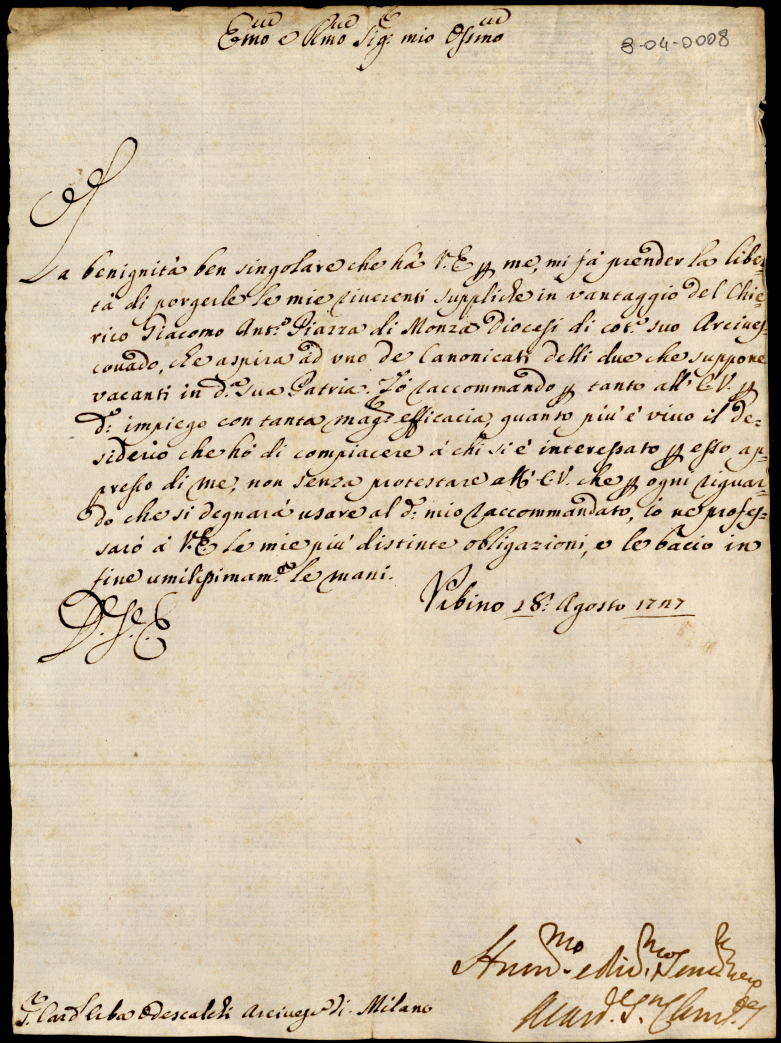 Emo e Rmo Sig.r mio Ossmo
3-04-0008
La benignità ben singolare che hà V.E. p me, mi fà prender la liber-
tà di porgerle le mie riuerenti suppliche in vantaggio del Chie-
rico Giacomo Ant.o Piazza di Monza Diocesi di cot.o suo Arciues-
couado, che aspira ad vno de Canonicati delli due che suppone
vacanti in d.a sua Patria. Lo raccommando p tanto all' E.V. p
d.o impiego con tanta mag.r efficacia, quanto più è viuo il de-
siderio che hò di compiacere à chi si è interessato p esso ap-
presso di me, non senza protestare all' E.V. che p ogni riguar-
do che si degnarà usare al d.o mio raccommandato, io ne profes-
sarò à V.E. le mie più distinte obligazioni, e le bacio in
fine umilissimam.e le mani.
D. V. E.
Vrbino 28. Agosto 1727
Hum.mo e
S. Card.l Erba Odescalchi Arciues.o di Milano